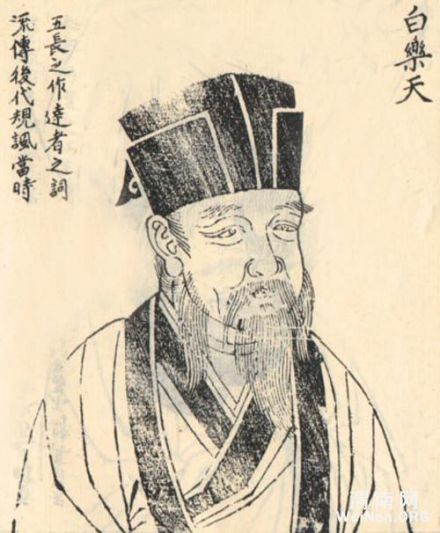 白樂天
五長之作達者之詞
流傳後代規諷當時
渭南网
WeiNan.ORG